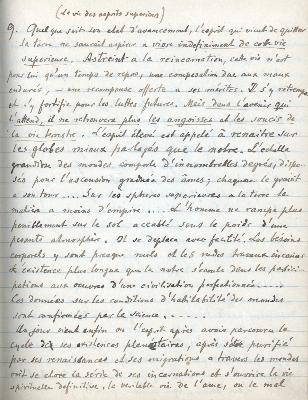 (La vie des esprits supérieurs)
9. Quel que soit son etat d'avancement, l'esprit qui vient de quitter
la terre ne saurait aspirer a vivre indéfiniment de cette vie
superieure. Astreint a la reincarnation, cette vie n'est
pour lui qu'un temps de repos, une compensation due aux maux
endurés, une recompense offerte a ses mérites. Il s'y retrempe
et s'y fortifie pour les luttes futures. Mais dans l'avenir qui
l'attend, il ne retrouvera plus les angoisses et les soucis de
la vie terrestre. L'esprit élevé est appelé à renaitre sur
les globes mieux partagés que le notre. L'echelle
grandiose des mondes comporte d'innombrables degrés, dispo-
sés pour l'ascension graduée des âmes; chacun le gravit
à son tour.... Sur les sphères superieures a la terre la
matière a moins d'empire.... L'homme ne rampe plus
peniblement sur le sol accablé sous le poids d'une
pesante atmosphère. Il se deplace avec facilité. Les besoins
corporels y sont presque nuls et les rudes travaux inconnus
L'existence plus longue que la notre s'écoule dans les partici-
pations aux oeuvres d'une civilisation perfectionnée.....
Ces données sur les conditions d'habitabilité des mondes
sont confirmées par la science......
Un jour vient enfin ou l'esprit après avoir parcouru le
cycle de ses existences planetaires, après s'être purifié
par ses renaissances et ses migrations a travers les mondes
voit se clore la série de ses incarnations et s'ouvrir la vie
spirituelle definitive, la veritable vie de l'ame, ou le mal